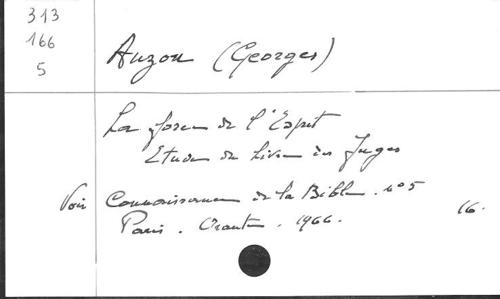 313
166
5
Auzou (Georges)
La force de l'Esprit
Etude du Livre des Juges
Voir Connaissance de la Bible. n° 5
Paris. Orante. 1966.
16.